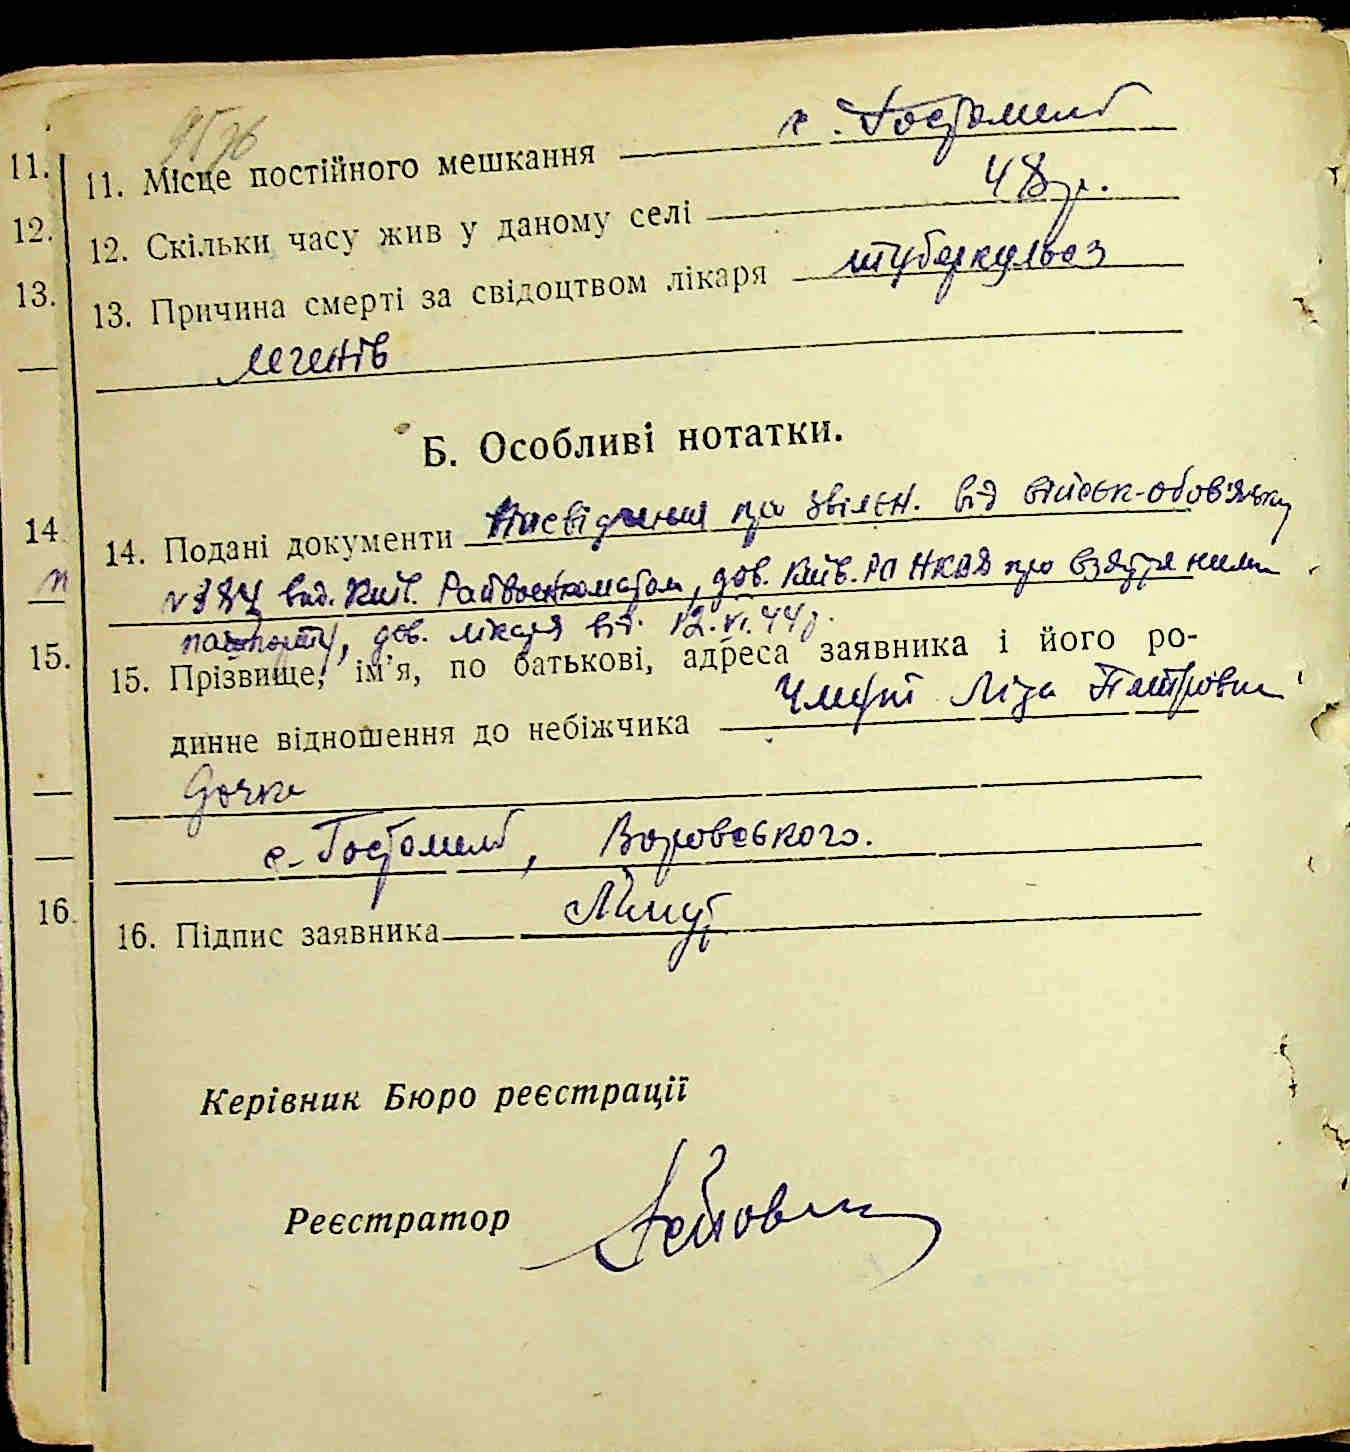 11. Місце постійного мешкання с. Гостомель
12. Скільки часу жив у даному селі 48 р.
13. Причина смерті за свідоцтвом лікаря туберкульоз
легенів
Б. Особливі нотатки.
14. Подані документи про звільн. від військ-обов'язку
вид. Київ. Райвоєнкоматом, дов. Київ. РО НКВД про взяття ними
пашпорту, дов. лікаря від 12.VI.44 р.
15. Прізвище, ім'я, по батькові, адреса заявника і його ро-
динне відношення до небіжчика Ліза Петровна
дочка
с. Гостомель, Воровського.
16. Підпис заявника
Керівник Бюро реєстрації
Реєстратор
11.
12.
13.
14
15.
16.